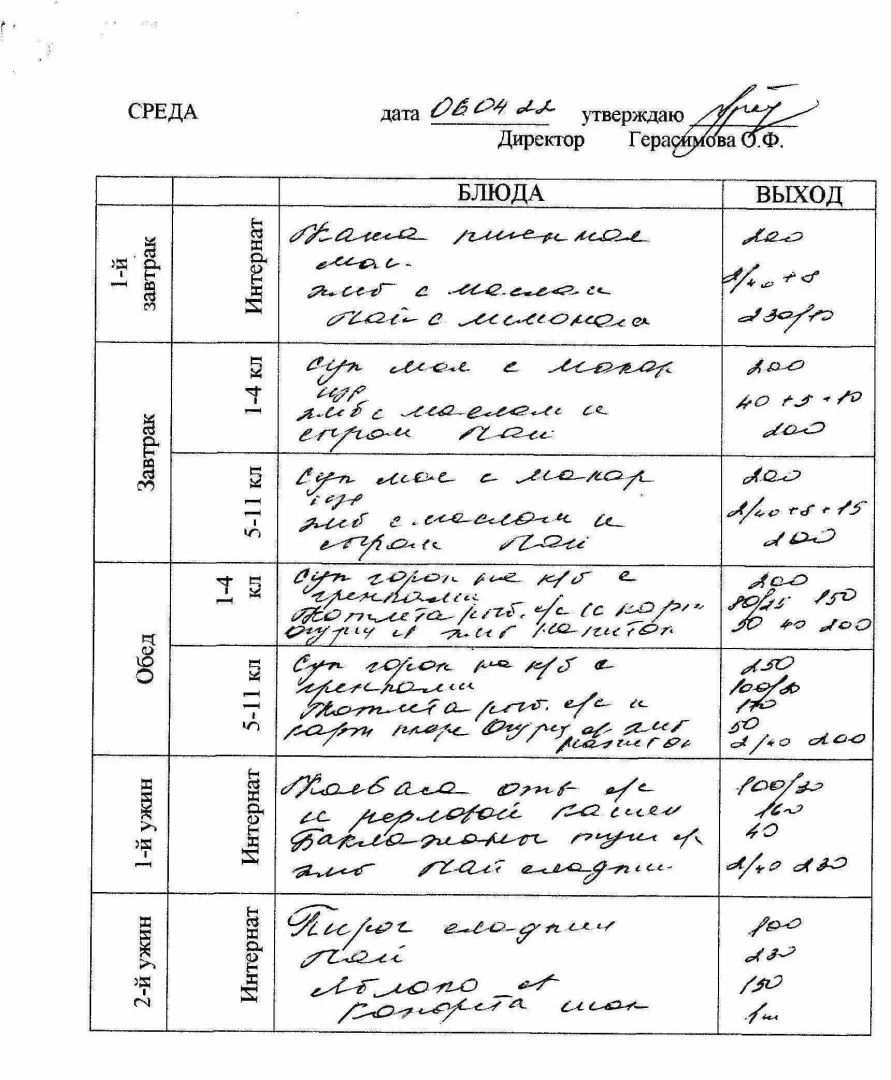 СРЕДА дата 06 04 22 утверждаю
Директор Герасимова О.Ф.
БЛЮДА ВЫХОД
1-й завтрак Интернат
Каша пшенная 200
мол.
хлеб с маслом 2/40+8
Чай с лимоном 230/10
Завтрак 1-4 кл
Суп мол с макар 200
изд
хлеб с маслом и 40+5+10
сыром Чай 200
5-11 кл
Суп мол с макар 200
изд
хлеб с маслом и 2/40+8+15
сыром Чай 200
Обед 1-4 кл
Суп горох на к/б с 200
гренками 80/25 150
Котлета рыб. с/с и карт
огурцы хлеб напиток 50 40 200
5-11 кл
Суп горох на к/б с 250
гренками 100/30
Котлета рыб. с/с и 170
карт пюре Огурц хлеб 50
напиток 2/40 200
1-й ужин Интернат
Колбаса отв с/с 100/30
и перловой кашей 160
Баклажаны туш 40
хлеб Чай сладкий 2/40 230
2-й ужин Интернат
Пирог сладкий 100
Чай 230
Яблоко 150
Конфета шок 1ш